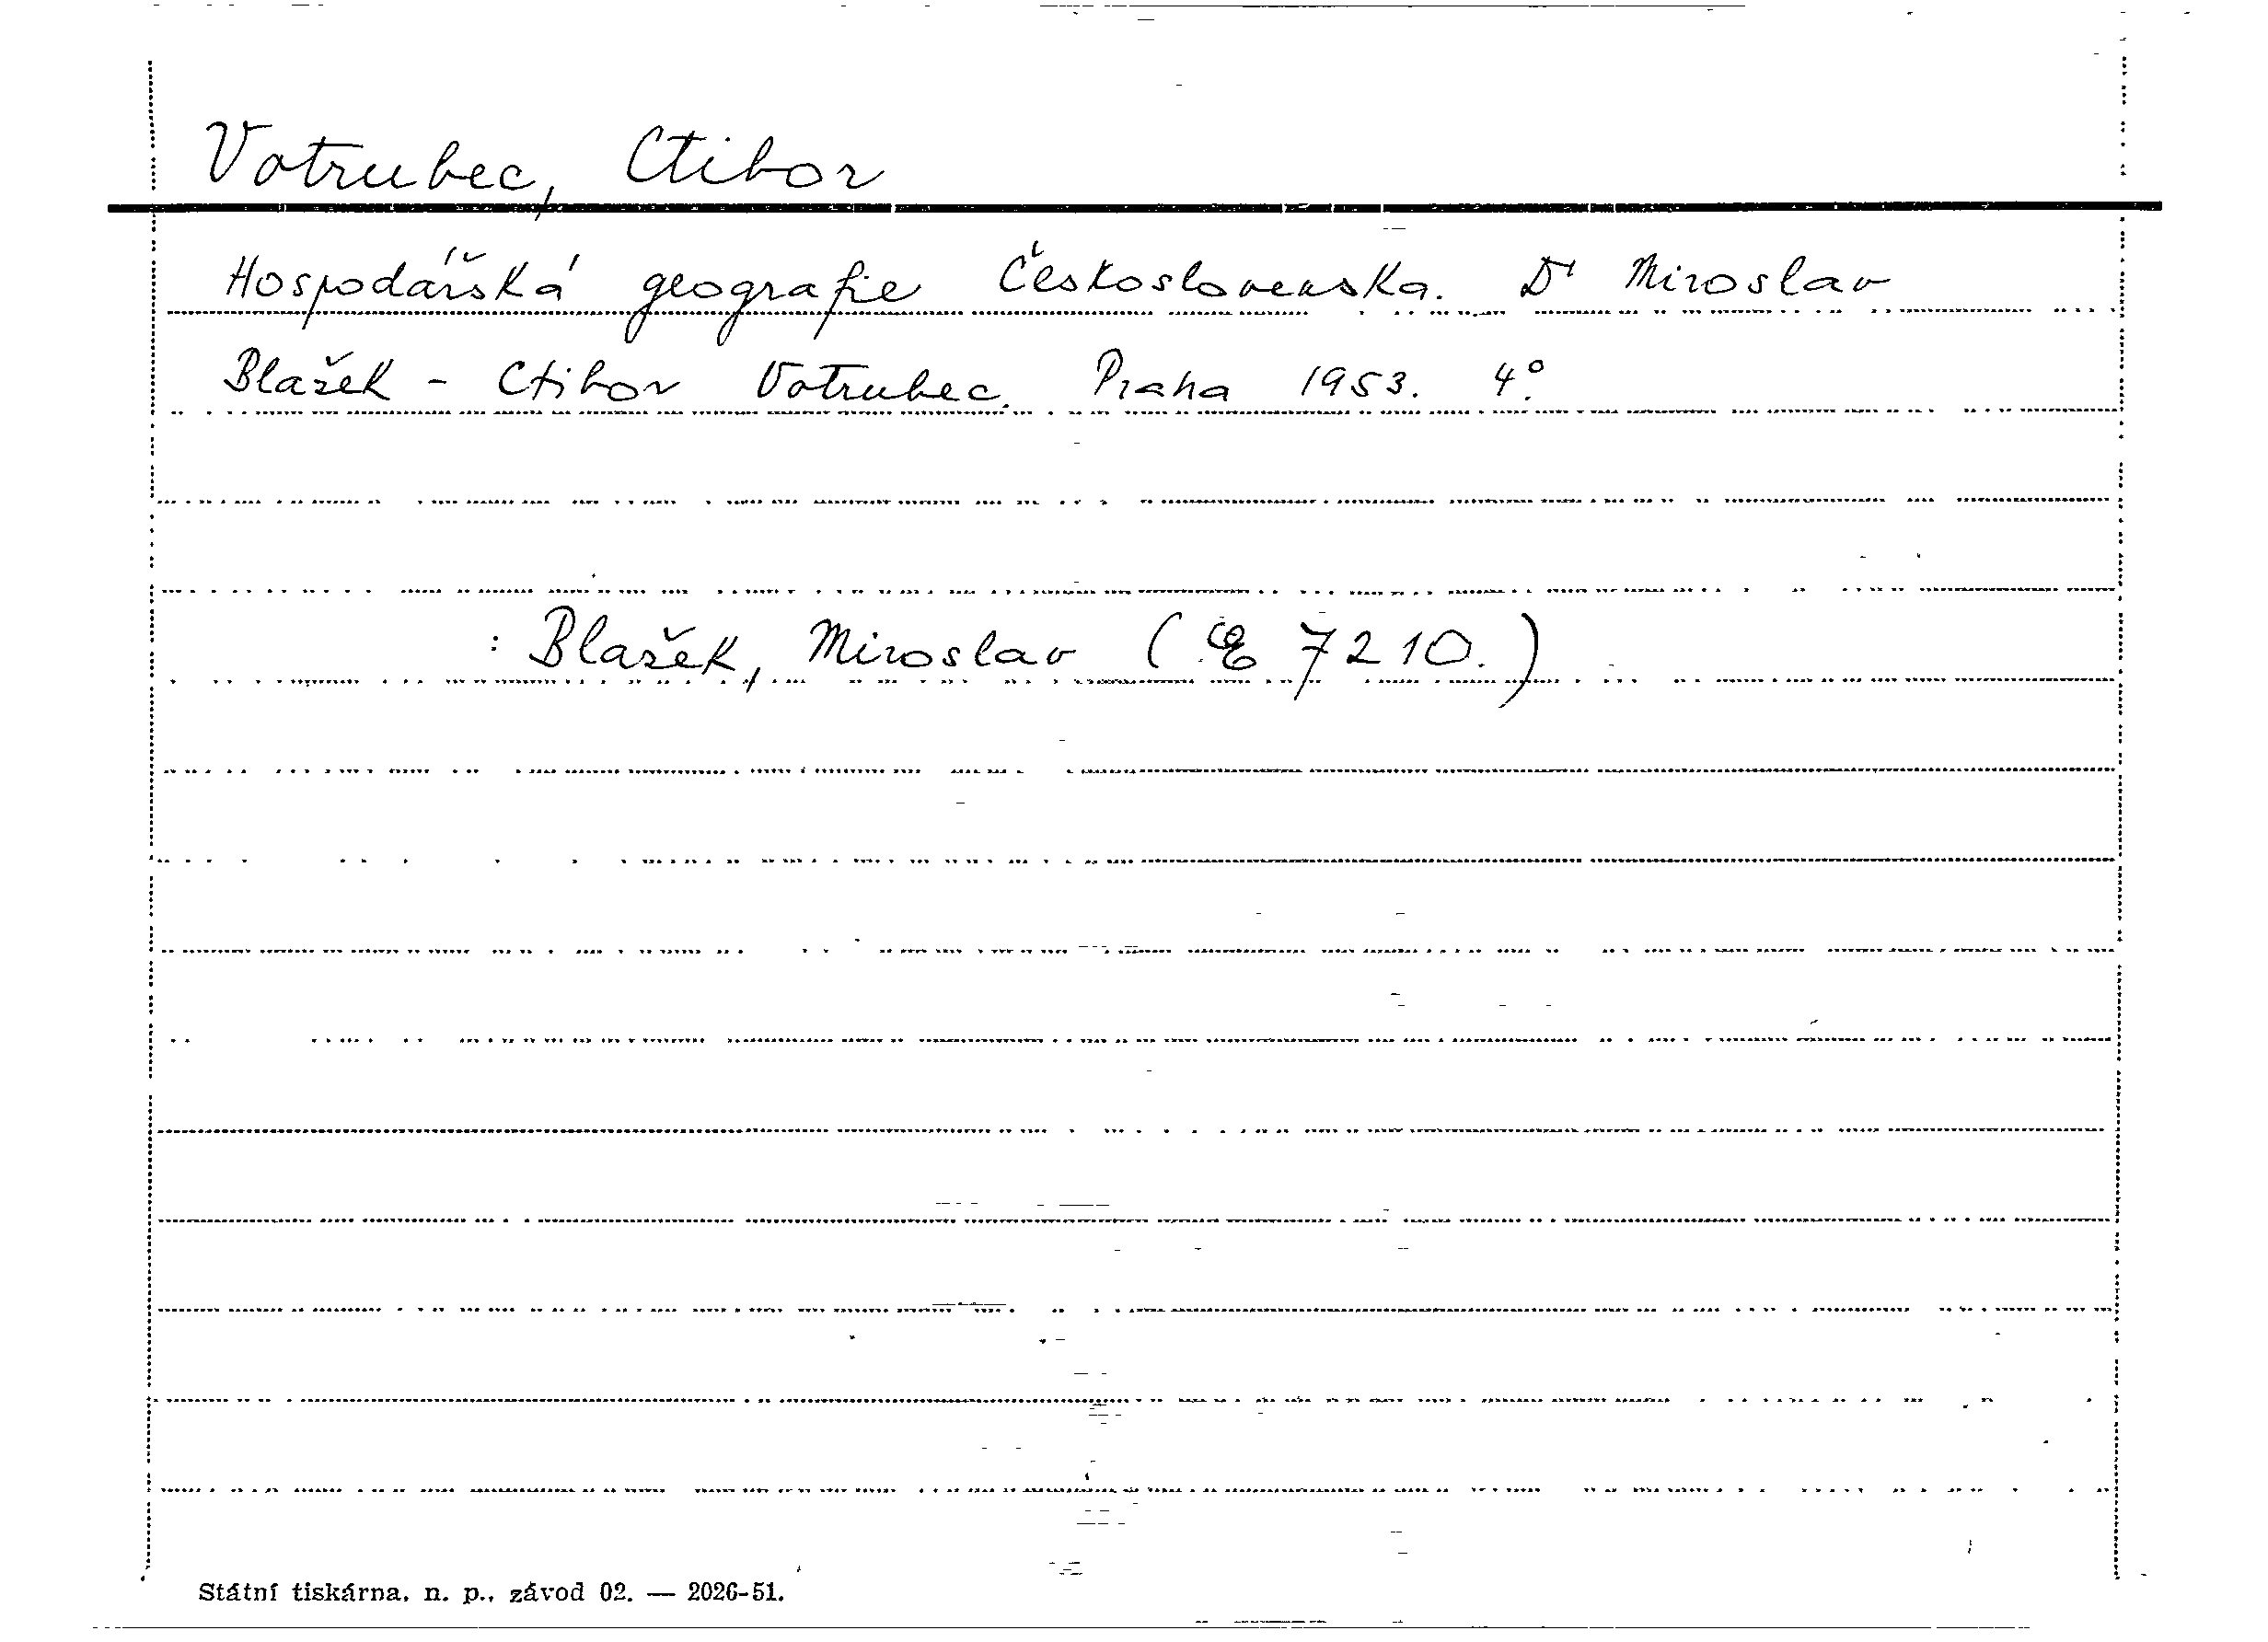 Votrubec, Ctibor
Hospodářská geografie Československa. Dr Miroslav
Blažek - Ctibor Votrubec. Praha 1953. 4°.
: Blažek, Miroslav ( 7210.)
Státní tiskárna, n. p., závod 02. — 2026-51.